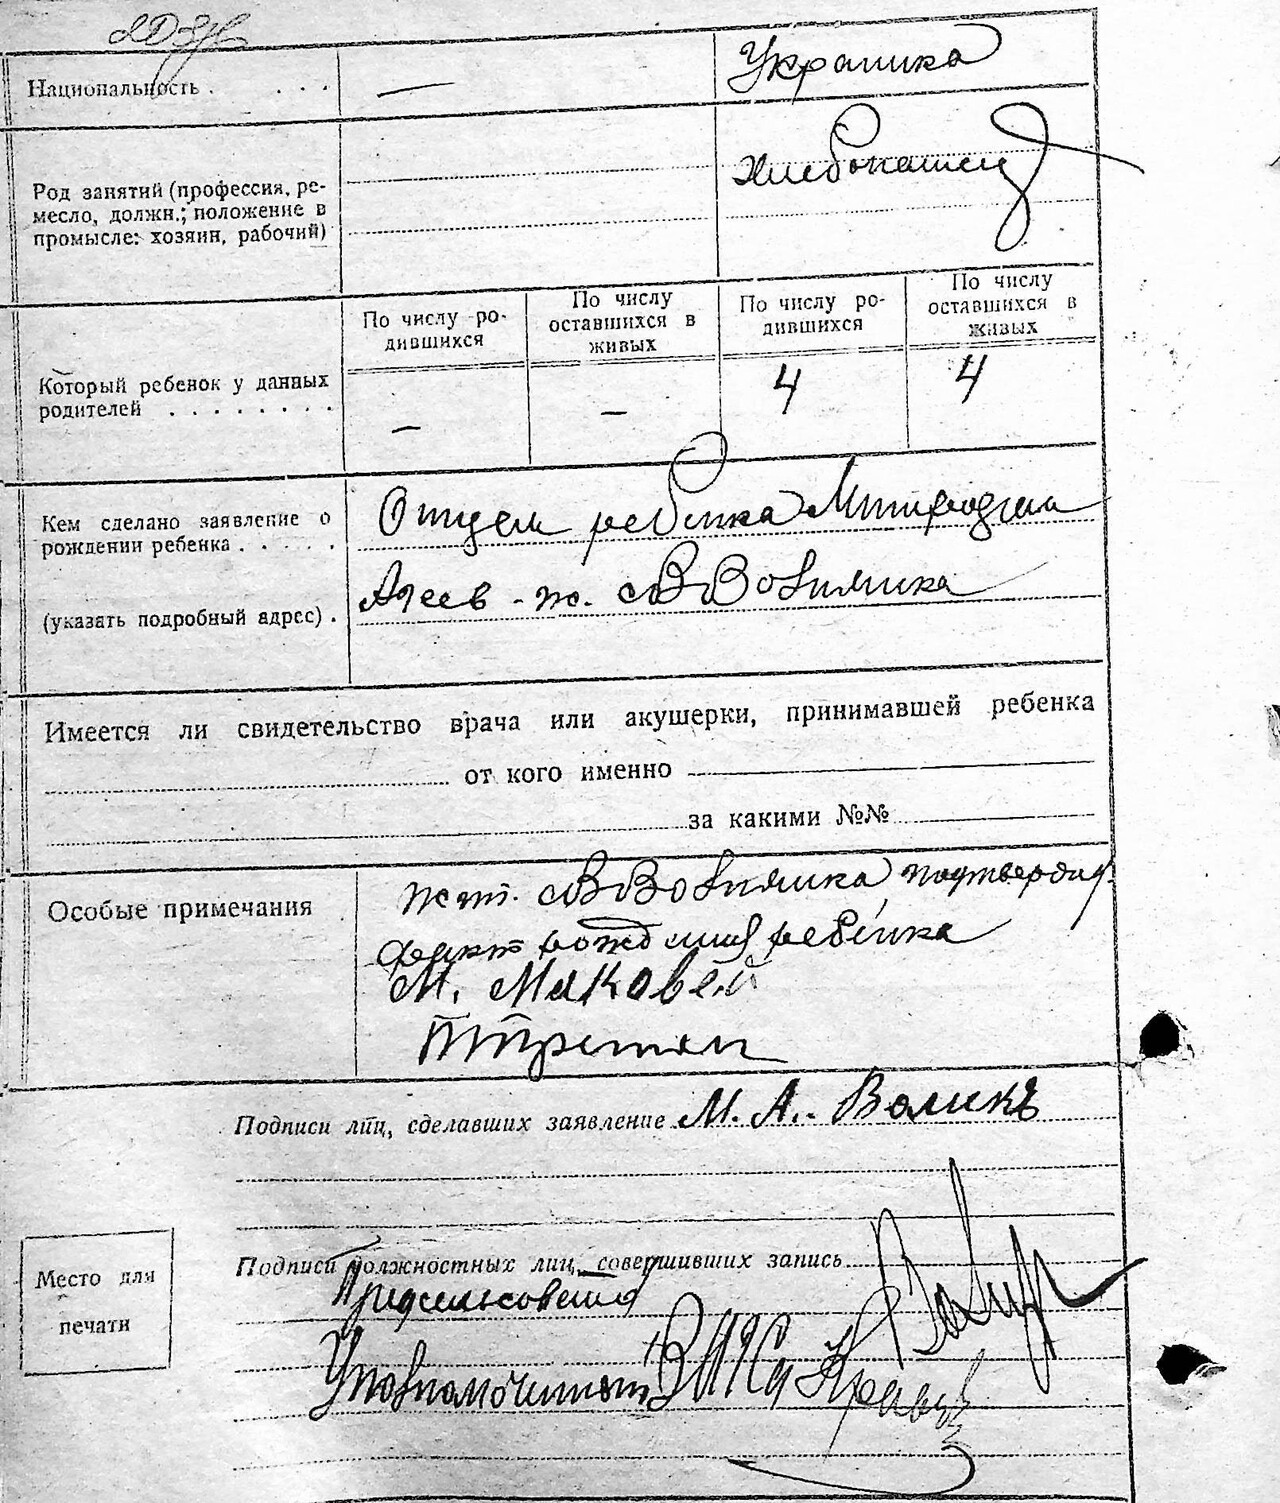 Национальность . . . . — Украинка
Род занятий (профессия, ре-
месло, должн.; положение в
промысле: хозяин, рабочий)
Хлебопашец
По числу ро-
дившихся
По числу
оставшихся в
живых
По числу ро-
дившихся
По числу
оставшихся в
живых
Который ребенок у данных
родителей . . . . . . . .
— — 4 4
Кем сделано заявление о
рождении ребенка . . . . .
(указать подробный адрес) .
Отцем ребенка
ж.
Имеется ли свидетельство врача или акушерки, принимавшей ребенка
от кого именно
за какими №№
Особые примечания
подтвердил
факт рождения ребенка
М. Маковей
Подписи лиц, сделавших заявление М. А. Воликъ
Подписи должностных лиц, совершивших запись
Предсельсовета
Уполномоченный ЗАГСа
Место для
печати